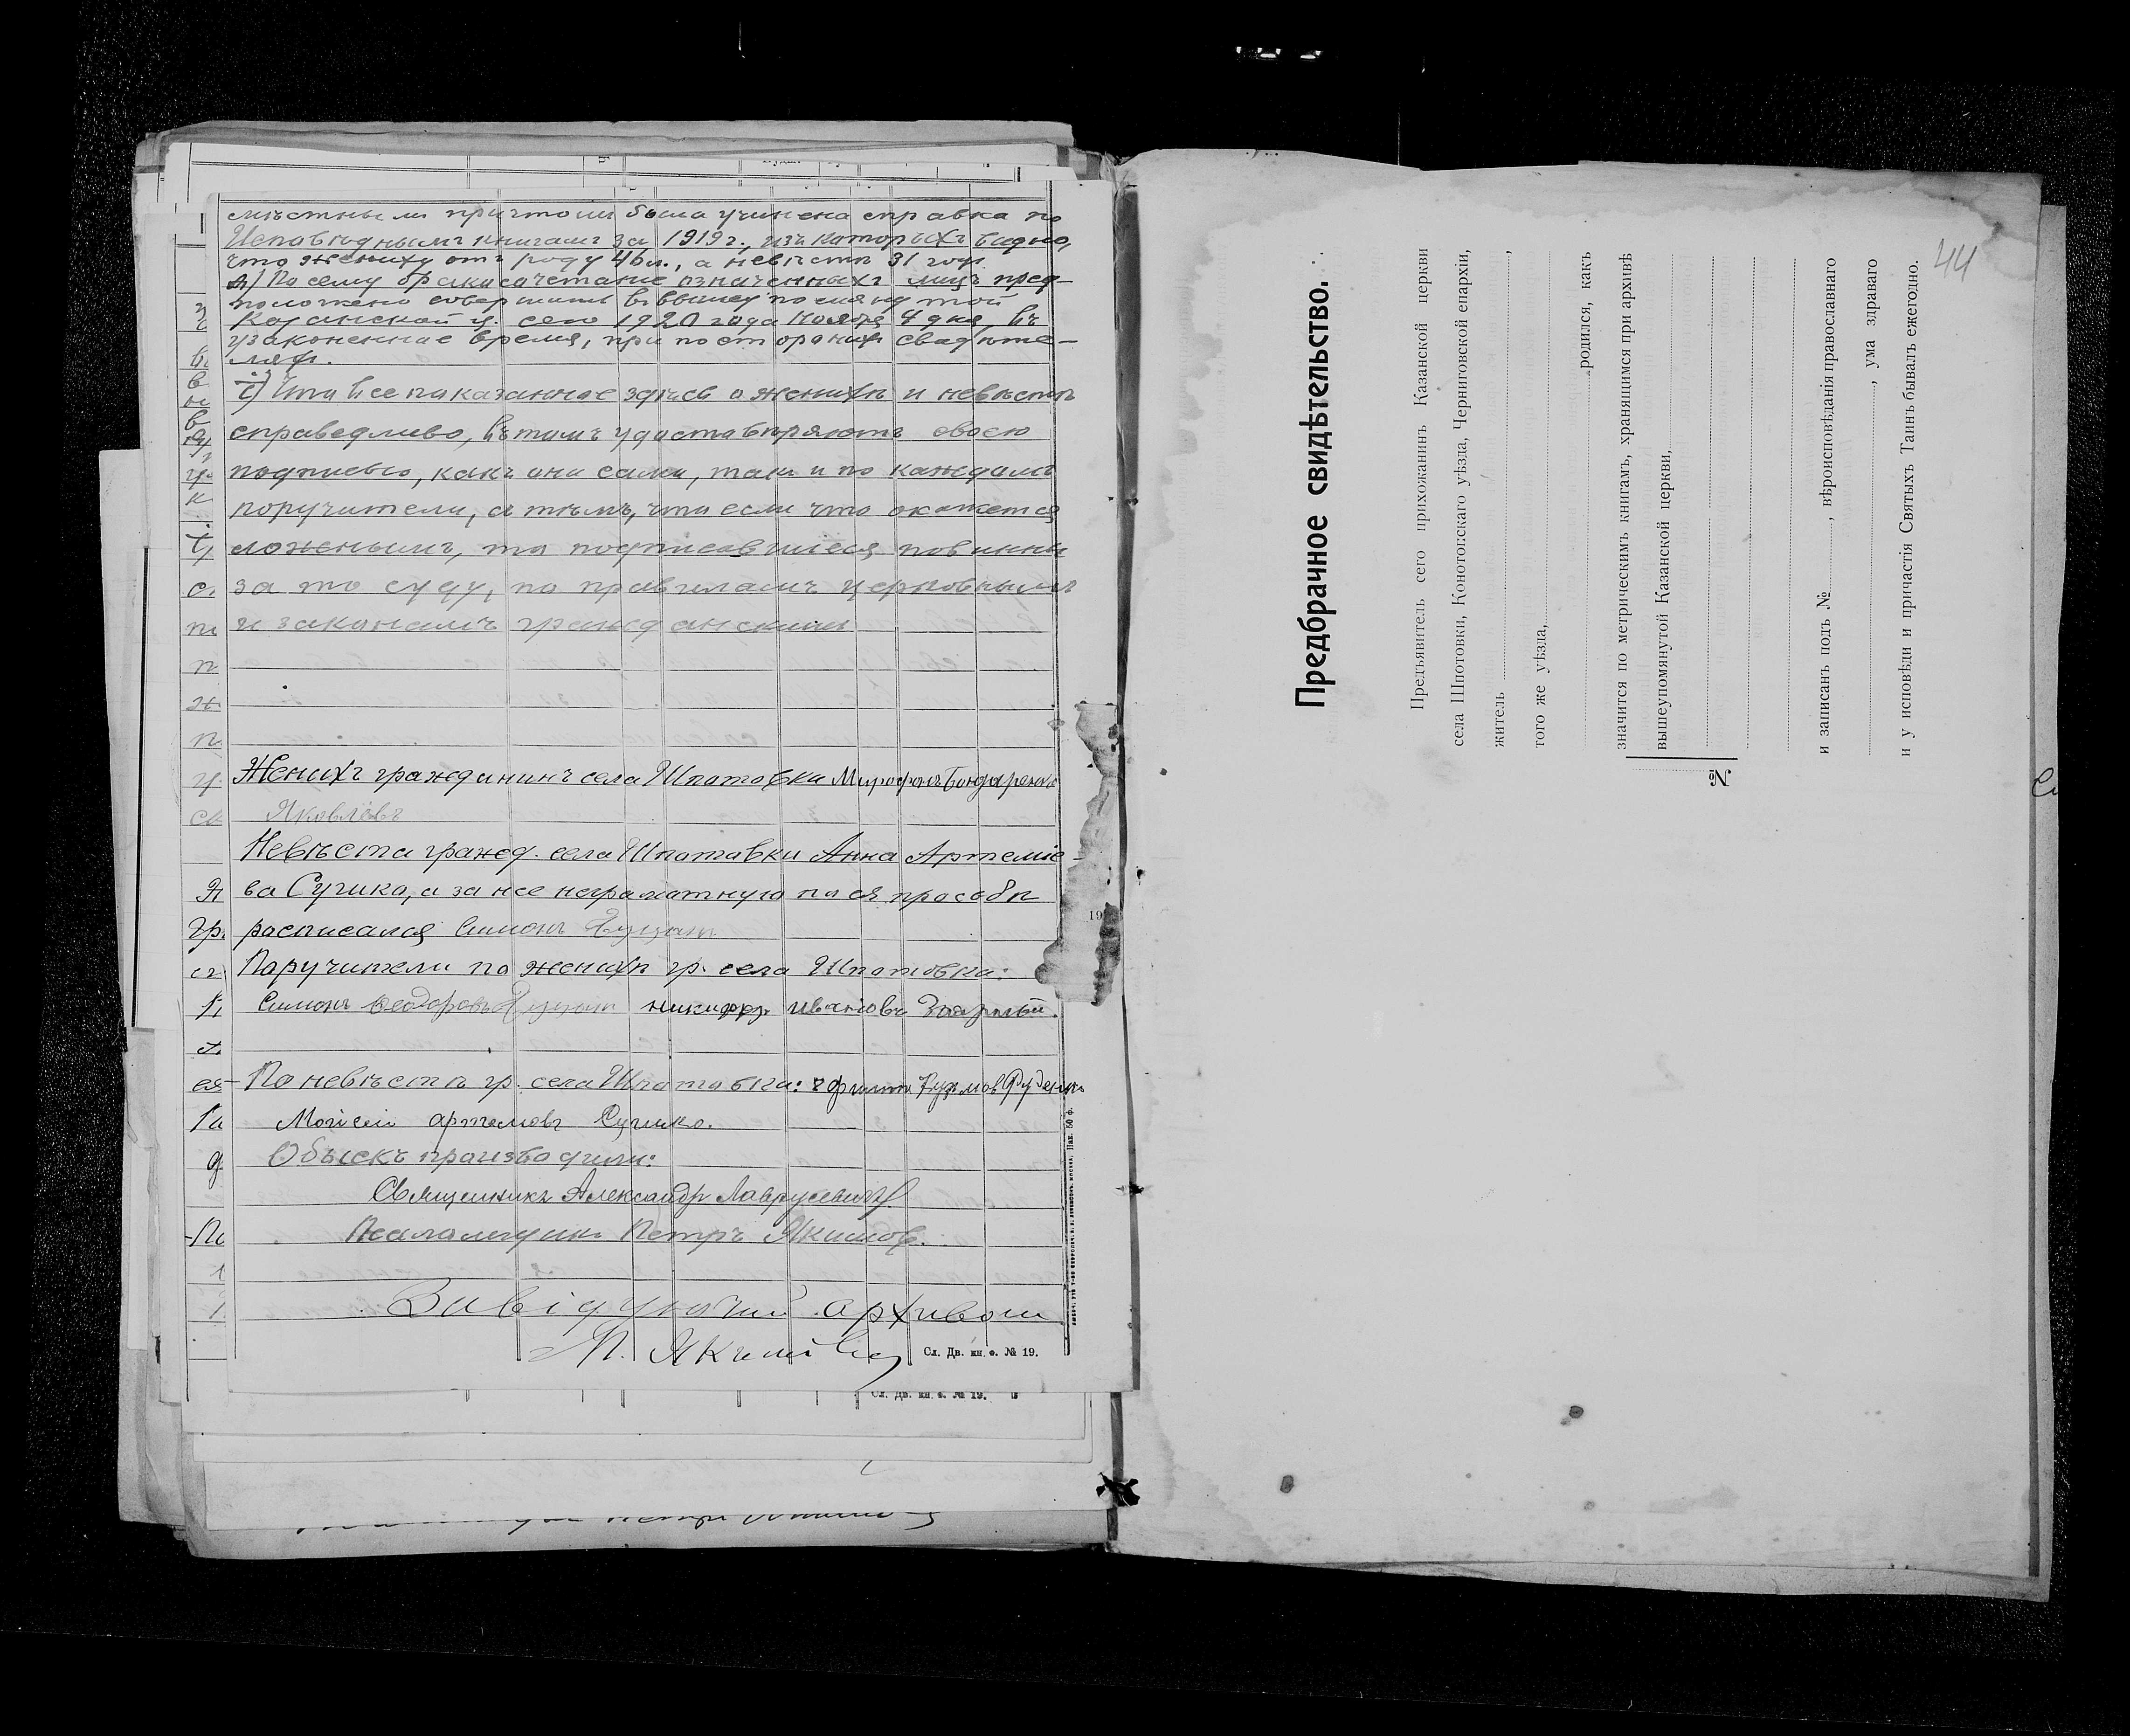 мѣстнымъ причтомъ была учинена справка по
Исповѣднымъ книгамъ за 1919 г., изъ которыхъ видно,
что жениху отъ роду 46 л., а невѣстѣ 31 годъ
Посему бракосочетаніе означенныхъ лицъ пред-
положено совершить въ вышеупомянутой
Казанской ц. сего 1920 года Ноября 4 дня, въ
узаконенное время, при постороннихъ свидѣте-
ляхъ.
Что все показанное здѣсь о женихѣ и невѣстѣ
справедливо, въ томъ удостовѣряютъ своею
подписью, какъ они сами, такъ и по каждомъ
поручители, съ тѣмъ, что если что окажется
ложнымъ, то подписавшіеся повинны
за то суду, по правиламъ церковнымъ
и законамъ гражданскимъ
Женихъ гражданинъ села Шпотовки Бондаренко
Яковлевъ
Невѣста гражд. села Шпотовки Анна Артеміе-
ва Сучика, а за нее неграмотную по ея просьбѣ
расписался Симонъ
Поручители по женихѣ гр. села Шпотовки:
Симонъ Феодоровъ никифоръ ивановъ
По невѣстѣ гр. села Шпотовки:
Мойсей артемовъ Сучико.
Обыскъ производили:
Священникъ Александръ Лаврусевичъ
Псаломщикъ Петръ Якимовъ.
Завідуючий архивом
П. Якимовъ
Сл. Дв. кн. ф. № 19.
Сл. Дв. кн. ф. № 19.
44
Предбрачное свидѣтельство.
Предъявитель сего прихожанинъ Казанской церкви
села Шпотовки, Конотопскаго уѣзда, Черниговской епархіи,
житель ,
того же уѣзда,
родился, какъ
значится по метрическимъ книгамъ, хранящимся при архивѣ
вышеупомянутой Казанской церкви,
№
и записанъ подъ № , вѣроисповѣданія православнаго
, ума здраваго
и у исповѣди и причастія Святыхъ Таинъ бывалъ ежегодно.